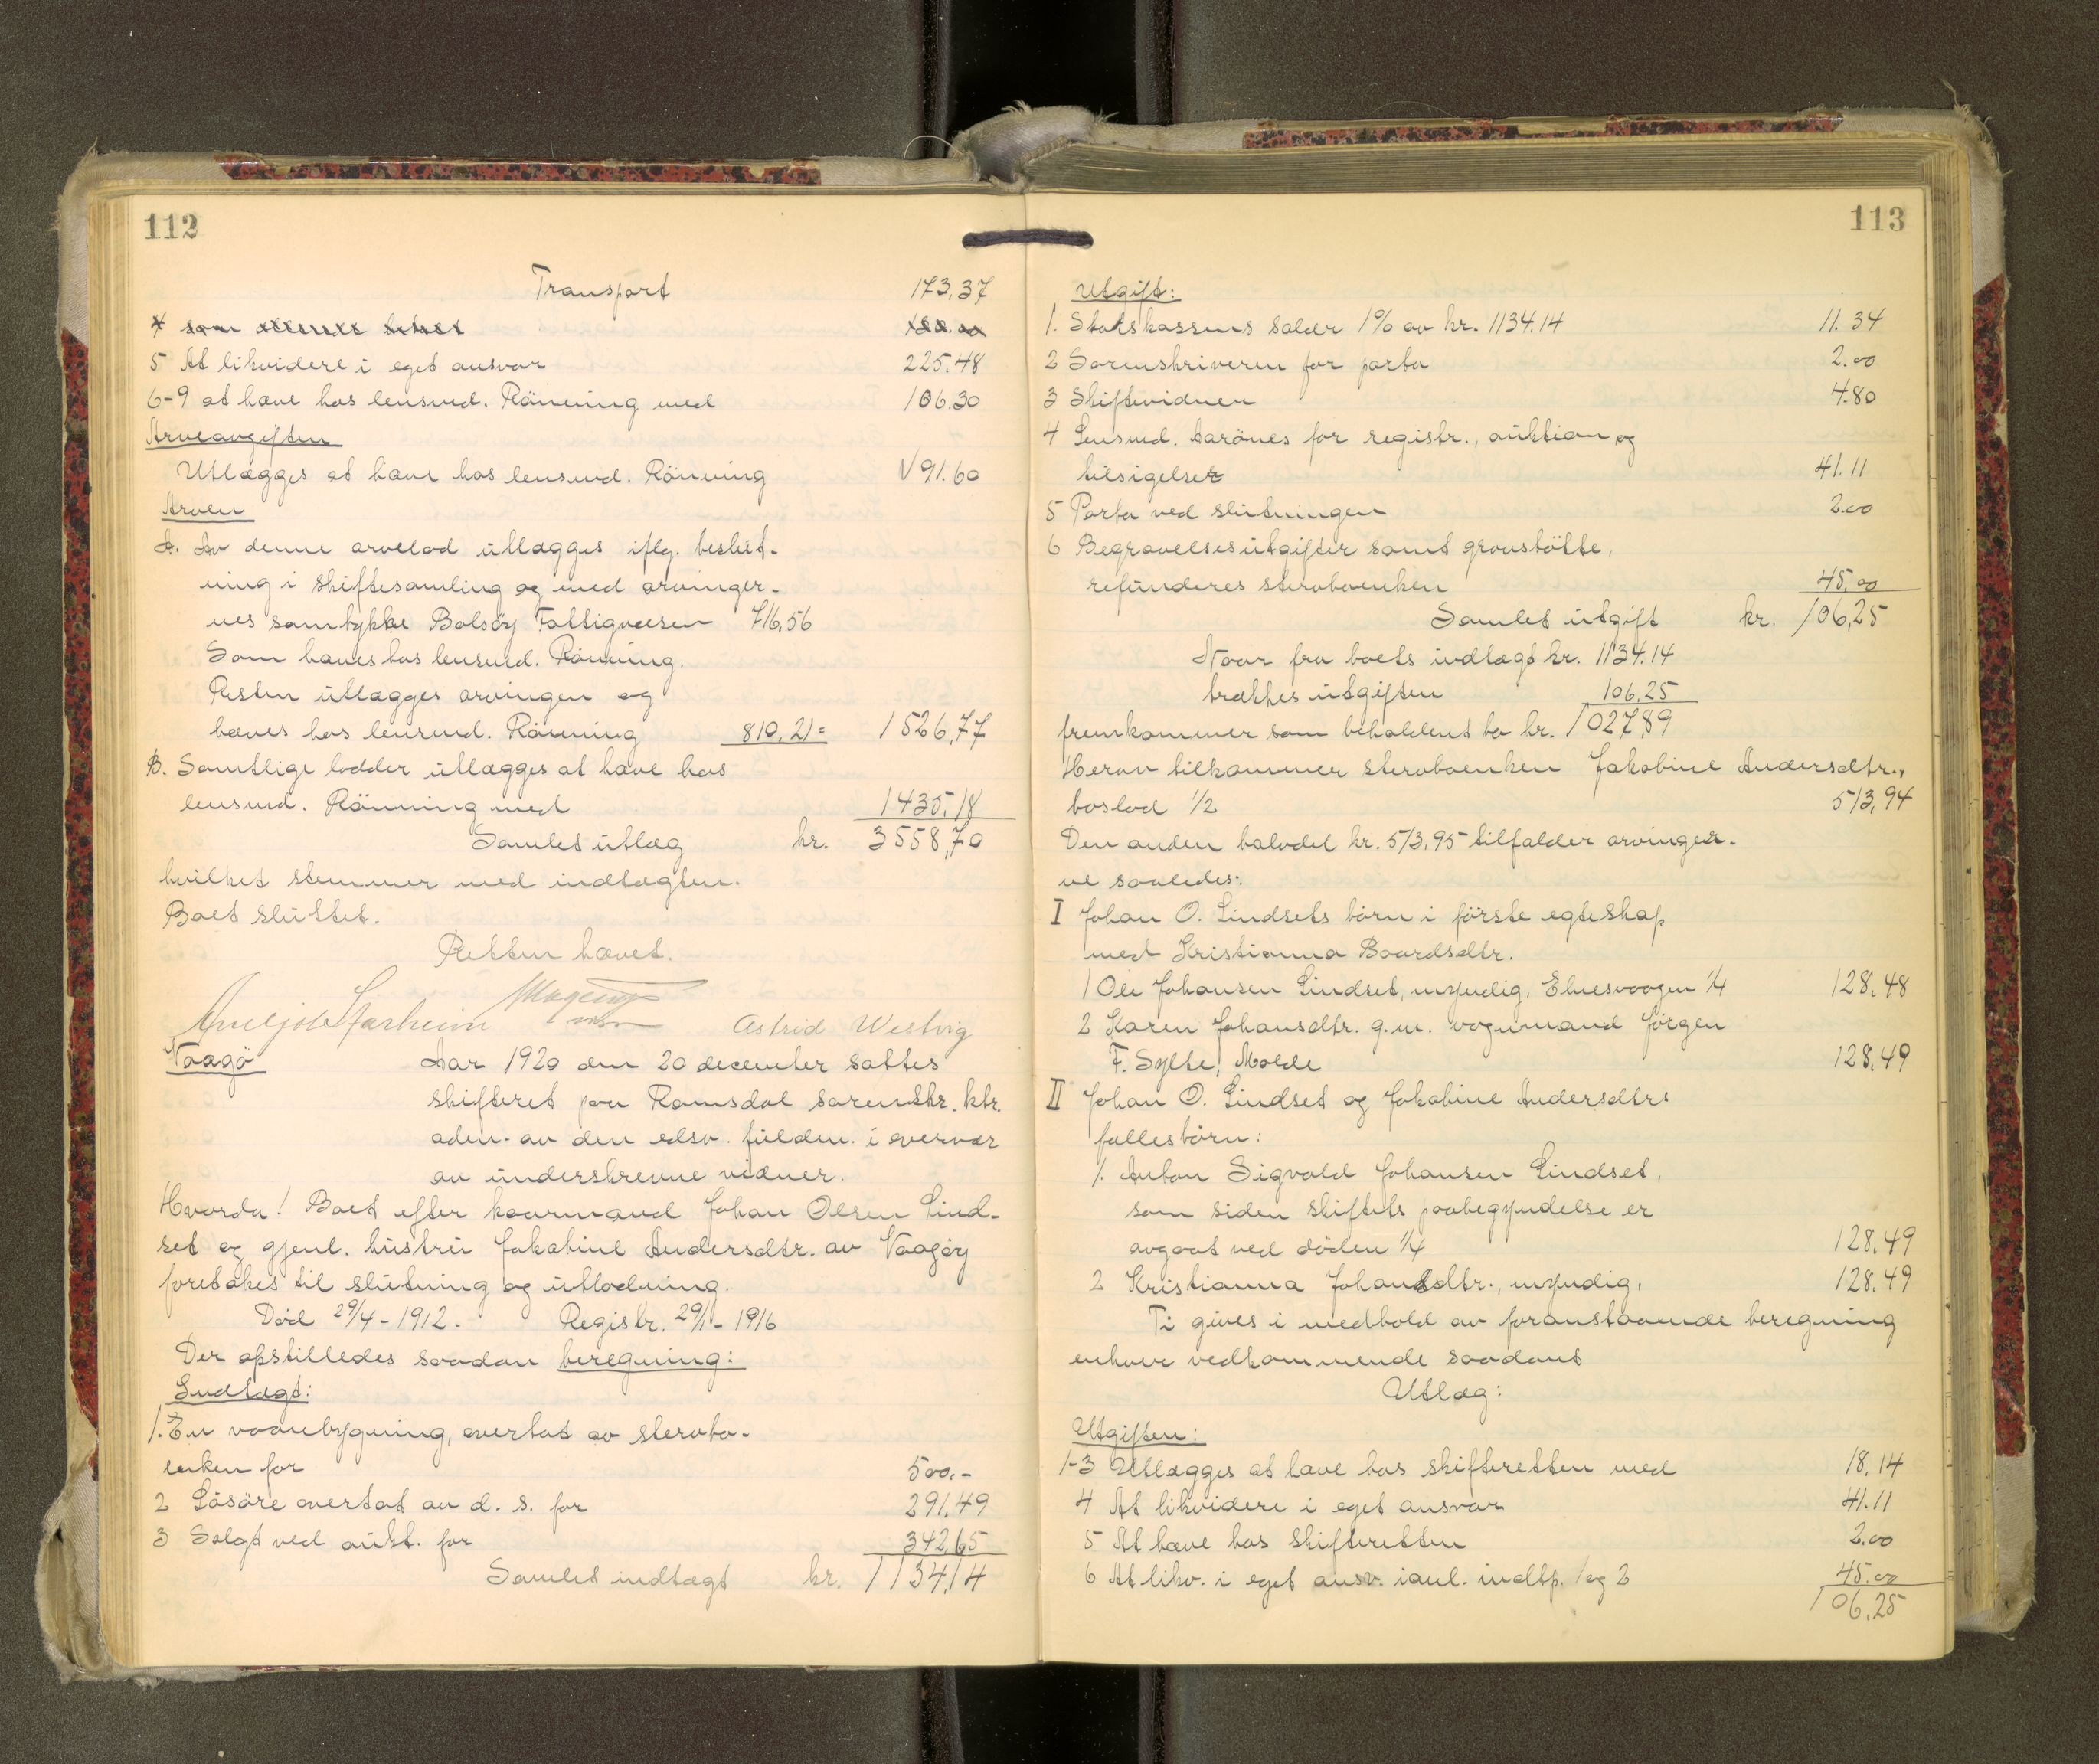 112
Transport 173,37
5 At likvidere i eget ansvar 225.48
6-9 at hæve hos lensmd. Rönning med 106.30
Arveavgiften
Utlægges at hæve hos lensmd. Rönning √ 91.60
Arven
A. Av denne arvelod utlægges iflg. beslut-
ning i skiftesamling og med arvinger-
nes samtykke Bolsöy Fattigvæsen 716,56
Som hæves hos lensmd. Rönning.
Resten utlægges arvingen og
hæves hos lensmd. Rönning 810,21 = 1526,77
B. Samtlige lodder utlægges at hæve hos
lensmd. Rönning med 1435,18
Samlet utlæg kr. 3558,70
hvilket stemmer med indtægten.
Boet sluttet.
Retten hævet.
Astrid Westvig
Vaagö Aar 1920 den 20 december sattes
skifteret paa Romsdal sorenskr. ktr.
adm. av den edsv. fuldm. i overvær
av underskrevne vidner.
Hvorda! Boet efter kaarmand Johan Olsen Lind-
set og gjenl. hustru Jakobine Andersdtr. av Vaagöy
foretakes til slutning og utlodning.
Död 29/4 - 1912. Registr. 29/1 - 1916
Der opstilledes saadan beregning:
Indtægt:
1. En vaanbygning, overtat av stervbo-
enken for 500.-
2 Lösöre overtat av d. s. for 291,49
3 Solgt ved aukt. for 342,65
Samlet indtægt kr. 1134,14
113
Utgift:
1. Statskassens salær 1% av kr. 1134.14 11.34
2 Sorenskriveren for porto 2.00
3 Skiftevidner 4.80
4 Lensmd. Aarönes for registr., auktion og
tilsigelser 41.11
5 Porto ved slutningen 2.00
6 Begravelsesutgifter samt gravstötte,
refunderes stervboenken 45,00
Samlet utgift kr. 106,25
Naar fra boets indtægt kr. 1134.14
trækkes utgiften 106.25
fremkommer som beholdent bo kr. 1027,89
Herav tilkommer stervboenken Jakobine Andersdtr.,
boslod 1/2 513,94
Den anden halvdel kr. 513,95 tilfalder arvinger-
ne saaledes:
I Johan O. Lindsets börn i förste egteskap
med Kristianna Baardsdtr.
1 Ole Johansen Lindset, myndig, Elnesvaagen 1/4 128,48
2 Karen Johansdtr. g.m. vognmand Jörgen
F. Sylte, Molde 128,49
II Johan O. Lindset og Jakobine Andersdtrs
fællesbörn:
1. Anton Sigvald Johansen Lindset,
som siden skiftets paabegyndelse er
avgaat ved döden 1/4 128,49
2 Kristianna Johansdtr., myndig, 128,49
Ti gives i medhold av foranstaaende beregning
enhver vedkommende saadant
Utlæg:
Utgiften:
1-3 Utlægges at hæve hos skifteretten med 18.14
4 At likvidere i eget ansvar 41.11
5 At hæve hos skifteretten 2.00
6 At likv. i eget ansv. ianl. indtp. 1 og 2 45.00
106,25